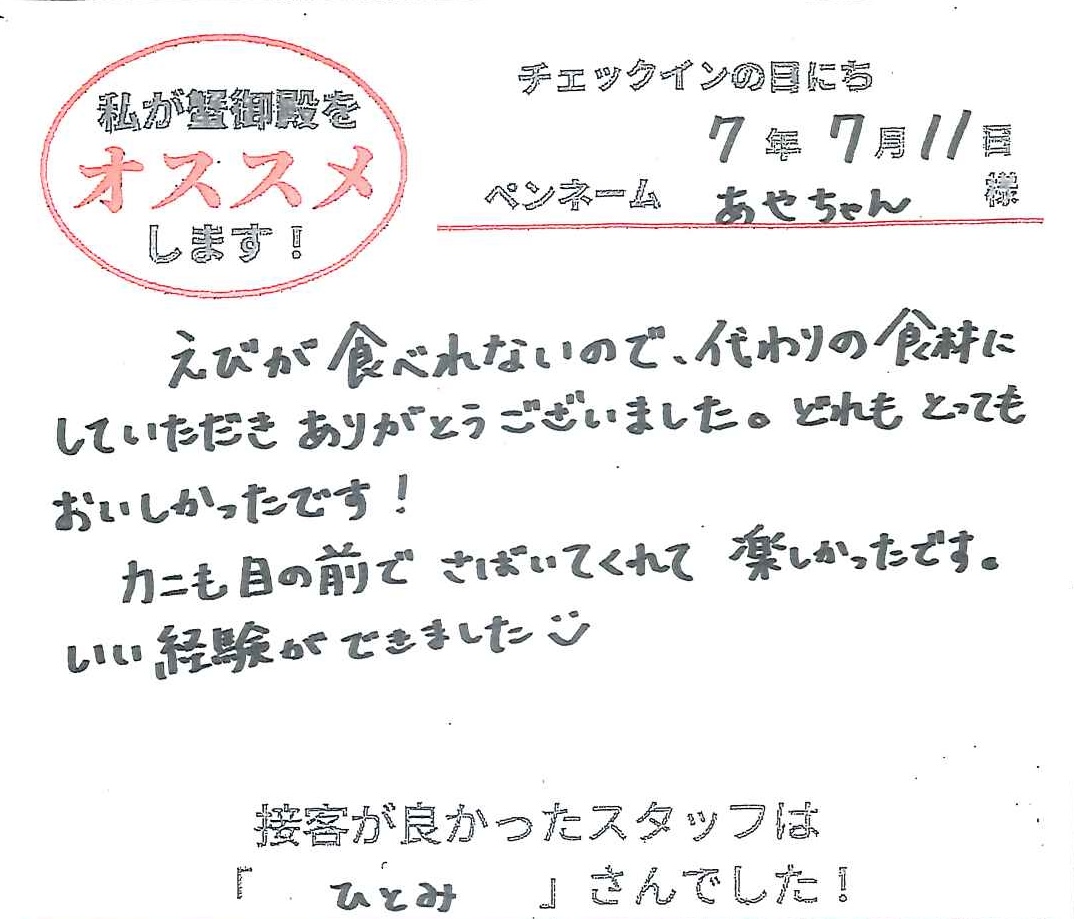 私が蟹御殿を
オススメ
します！
チェックインの日にち
7年 7月11日
ペンネーム あやちゃん 様
えびが食べれないので、代わりの食材に
していただきありがとうございました。どれもとっても
おいしかったです！
カニも目の前でさばいてくれて 楽しかったです。
いい経験ができました
接客が良かったスタッフは
「 ひとみ 」さんでした！